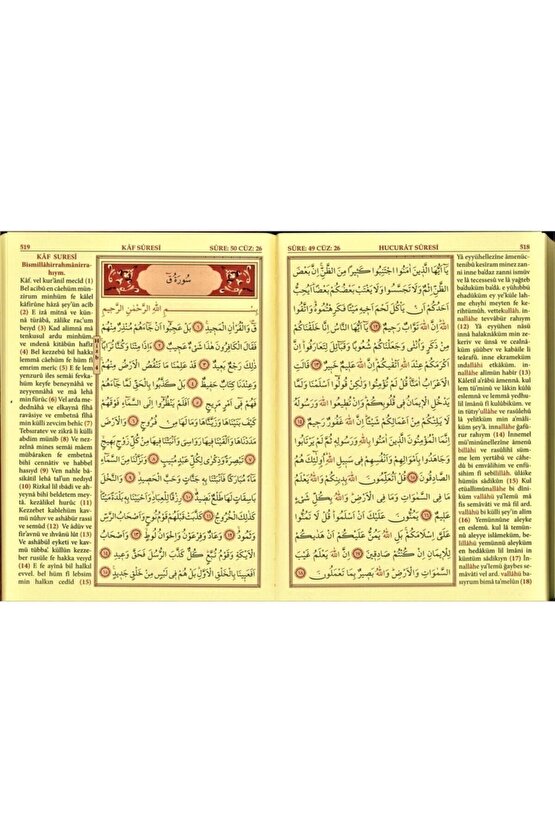 518
HUCURÂT SÛRESİ
SÛRE: 49 CÜZ: 26
يَٓا اَيُّهَا الَّذ۪ينَ اٰمَنُوا اجْتَنِبُوا كَث۪يرًا مِنَ الظَّنِّ اِنَّ بَعْضَ
الظَّنِّ اِثْمٌ وَلَا تَجَسَّسُوا وَلَا يَغْتَبْ بَعْضُكُمْ بَعْضًا اَيُحِبُّ
اَحَدُكُمْ اَنْ يَأْكُلَ لَحْمَ اَخ۪يهِ مَيْتًا فَكَرِهْتُمُوهُ وَاتَّقُوا
اللّٰهَ اِنَّ اللّٰهَ تَوَّابٌ رَح۪يمٌ ﴿١٢﴾ يَٓا اَيُّهَا النَّاسُ اِنَّا خَلَقْنَاكُمْ
مِنْ ذَكَرٍ وَاُنْثٰى وَجَعَلْنَاكُمْ شُعُوبًا وَقَبَٓائِلَ لِتَعَارَفُوا اِنَّ
اَكْرَمَكُمْ عِنْدَ اللّٰهِ اَتْقٰيكُمْ اِنَّ اللّٰهَ عَل۪يمٌ خَب۪يرٌ ﴿١٣﴾ قَالَتِ
الْاَعْرَابُ اٰمَنَّا قُلْ لَمْ تُؤْمِنُوا وَلٰكِنْ قُولُٓوا اَسْلَمْنَا وَلَمَّا
يَدْخُلِ الْا۪يمَانُ ف۪ي قُلُوبِكُمْ وَاِنْ تُط۪يعُوا اللّٰهَ وَرَسُولَهُ
لَا يَلِتْكُمْ مِنْ اَعْمَالِكُمْ شَيْـًٔا اِنَّ اللّٰهَ غَفُورٌ رَح۪يمٌ ﴿١٤﴾
اِنَّمَا الْمُؤْمِنُونَ الَّذ۪ينَ اٰمَنُوا بِاللّٰهِ وَرَسُولِه۪ ثُمَّ لَمْ يَرْتَابُوا
وَجَاهَدُوا بِاَمْوَالِهِمْ وَاَنْفُسِهِمْ ف۪ي سَب۪يلِ اللّٰهِ اُو۬لٰٓئِكَ هُمُ
الصَّادِقُونَ ﴿١٥﴾ قُلْ اَتُعَلِّمُونَ اللّٰهَ بِد۪ينِكُمْ وَاللّٰهُ يَعْلَمُ
مَا فِي السَّمٰوَاتِ وَمَا فِي الْاَرْضِ وَاللّٰهُ بِكُلِّ شَيْءٍ
عَل۪يمٌ ﴿١٦﴾ يَمُنُّونَ عَلَيْكَ اَنْ اَسْلَمُوا قُلْ لَا تَمُنُّوا
عَلَيَّ اِسْلَامَكُمْ بَلِ اللّٰهُ يَمُنُّ عَلَيْكُمْ اَنْ هَدٰيكُمْ
لِلْا۪يمَانِ اِنْ كُنْتُمْ صَادِق۪ينَ ﴿١٧﴾ اِنَّ اللّٰهَ يَعْلَمُ غَيْبَ
السَّمٰوَاتِ وَالْاَرْضِ وَاللّٰهُ بَص۪يرٌ بِمَا تَعْمَلُونَ ﴿١٨﴾
Yâ eyyühellezîne âmenüc-
tenibû kesîram minez zan-
ni inne ba'daz zanni ismüv
ve lâ tecessesû ve lâ yağteb
ba'duküm ba'dâ. e yühıbbü
ehadüküm ey ye'küle lah-
me ehıyhi meyten fe ke-
rihtümûh. vettekullâh. in-
nallâhe tevvâbür rahıym
(12) Yâ eyyühen nâsü
innâ halaknâküm min ze-
keriv ve ünsâ ve cealnâ-
küm şüûbev ve kabâile li
teârafû. inne ekrameküm
ındallâhi etkâküm. in-
nallâhe alîmün habîr (13)
Kâletil a'râbü âmennâ. kul
lem tü'minû ve lâkin kûlû
eslemnâ ve lemmâ yedhu-
lil îmânü fî kulûbiküm. ve
in tütıy'ullâhe ve rasûlehû
lâ yelitküm min a'mâli-
küm şey'â. innallâhe ğafû-
rur rahıym (14) İnnemel
mü'minûnellezîne âmenû
billâhi ve rasûlihî süm-
me lem yertâbû ve câhe-
dû bi emvâlihim ve enfü-
sihim fî sebîlillâh. ülâike
hümüs sâdikûn (15) Kul
etüallimûnallâhe bi dîni-
küm vallâhü ya'lemü mâ
fis semâvâti ve mâ fil ard.
vallâhü bi külli şey'in alîm
(16) Yemünnûne aleyke
en eslemû. kul lâ temünnû
aleyye islâmeküm, be-
lillâhü yemünnü aleyküm
en hedâküm lil îmâni in
küntüm sâdikıyn (17) İn-
nallâhe ya'lemü ğaybes se-
mâvâti vel ard. vallâhü ba-
sıyrum bimâ ta'melûn (18)
519
KÂF SÛRESİ
SÛRE: 50 CÜZ: 26
سُورَةُ قٓ
بِسْمِ اللّٰهِ الرَّحْمٰنِ الرَّح۪يمِ
قٓ وَالْقُرْاٰنِ الْمَج۪يدِ ﴿١﴾ بَلْ عَجِبُٓوا اَنْ جَٓاءَهُمْ مُنْذِرٌ مِنْهُمْ
فَقَالَ الْكَافِرُونَ هٰذَا شَيْءٌ عَج۪يبٌ ﴿٢﴾ ءَاِذَا مِتْنَا وَكُنَّا تُرَابًا
ذٰلِكَ رَجْعٌ بَع۪يدٌ ﴿٣﴾ قَدْ عَلِمْنَا مَا تَنْقُصُ الْاَرْضُ مِنْهُمْ
وَعِنْدَنَا كِتَابٌ حَف۪يظٌ ﴿٤﴾ بَلْ كَذَّبُوا بِالْحَقِّ لَمَّا جَٓاءَهُمْ
فَهُمْ ف۪ٓي اَمْرٍ مَر۪يجٍ ﴿٥﴾ اَفَلَمْ يَنْظُرُٓوا اِلَى السَّمَٓاءِ فَوْقَهُمْ
كَيْفَ بَنَيْنَاهَا وَزَيَّنَّاهَا وَمَا لَهَا مِنْ فُرُوجٍ ﴿٦﴾ وَالْاَرْضَ
مَدَدْنَاهَا وَاَلْقَيْنَا ف۪يهَا رَوَاسِيَ وَاَنْبَتْنَا ف۪يهَا مِنْ كُلِّ زَوْجٍ بَه۪يجٍ
﴿٧﴾ تَبْصِرَةً وَذِكْرٰى لِكُلِّ عَبْدٍ مُن۪يبٍ ﴿٨﴾ وَنَزَّلْنَا مِنَ السَّمَٓاءِ
مَٓاءً مُبَارَكًا فَاَنْبَتْنَا بِه۪ جَنَّاتٍ وَحَبَّ الْحَص۪يدِ ﴿٩﴾ وَالنَّخْلَ
بَاسِقَاتٍ لَهَا طَلْعٌ نَض۪يدٌ ﴿١٠﴾ رِزْقًا لِلْعِبَادِ وَاَحْيَيْنَا بِه۪ بَلْدَةً مَيْتًا
كَذٰلِكَ الْخُرُوجُ ﴿١١﴾ كَذَّبَتْ قَبْلَهُمْ قَوْمُ نُوحٍ وَاَصْحَابُ الرَّسِّ
وَثَمُودُ ﴿١٢﴾ وَعَادٌ وَفِرْعَوْنُ وَاِخْوَانُ لُوطٍ ﴿١٣﴾ وَاَصْحَابُ
الْاَيْكَةِ وَقَوْمُ تُبَّعٍ كُلٌّ كَذَّبَ الرُّسُلَ فَحَقَّ وَع۪يدِ ﴿١٤﴾
اَفَعَي۪ينَا بِالْخَلْقِ الْاَوَّلِ بَلْ هُمْ ف۪ي لَبْسٍ مِنْ خَلْقٍ جَد۪يدٍ ﴿١٥﴾
KÂF SURESİ
Bismillâhirrahmânirra-
hıym.
Kâf. vel kur'ânil mecîd (1)
Bel acibû en câehüm mün-
zirum minhüm fe kâlel
kâfirûne hâzâ şey'ün acîb
(2) E izâ mitnâ ve kün-
nâ türâbâ, zâlike rac'um
beıyd (3) Kad alimnâ mâ
tenkusul ardu minhüm,
ve ındenâ kitâbün hafıyz
(4) Bel kezzebû bil hakkı
lemmâ câehüm fe hüm fî
emrim meric (5) E fe lem
yenzurû iles semâi fevka-
hüm keyfe beneynâhâ ve
zeyyennâhâ ve mâ lehâ
min fürûc (6) Vel arda me-
dednâhâ ve elkaynâ fîhâ
ravâsiye ve enbetnâ fîhâ
min külli zevcim behîc (7)
Tebsıratev ve zikrâ li külli
abdim münîb (8) Ve nez-
zelnâ mines semâi mâem
mübâraken fe embetnâ
bihî cennâtiv ve habbel
hasıyd (9) Ven nahle bâ-
sikâtil lehâ tal'un nedıyd
(10) Rizkal lil ıbâdi ve ah-
yeynâ bihî beldetem mey-
tâ. kezâlikel hurûc (11)
Kezzebet kablehüm kav-
mü nûhıv ve ashâbür rassi
ve semûd (12) Ve âdüv ve
fir'avnü ve ıhvânü lût (13)
Ve ashâbül eyketi ve kav-
mü tübba'. küllün kezze-
ber rusüle fe hakka veıyd
(14) E fe ayînâ bil halkıl
evvel. bel hüm fî lebsim
min halkın cedîd (15)